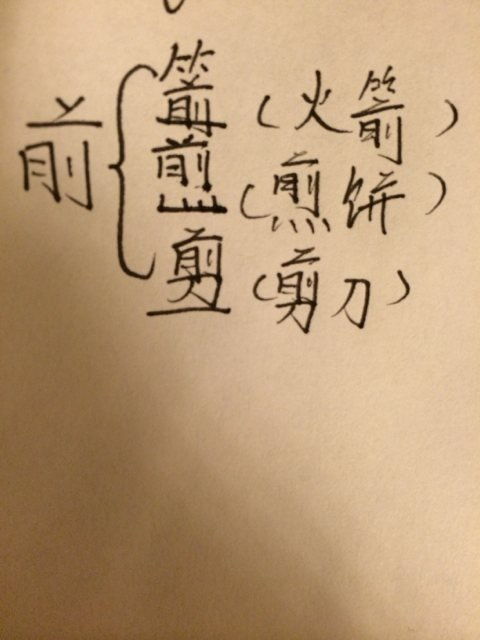 前
箭(火箭)
煎(煎饼)
剪(剪刀)